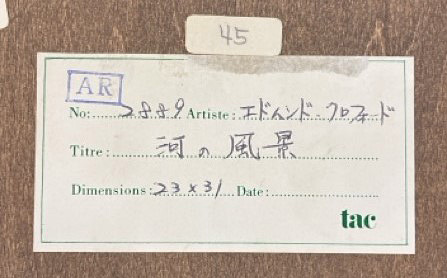 45
AR
No:......2889 Artiste: エドムンド・クロフォード
Titre:......河の風景
Dimensions: 23×31 Date:
tac